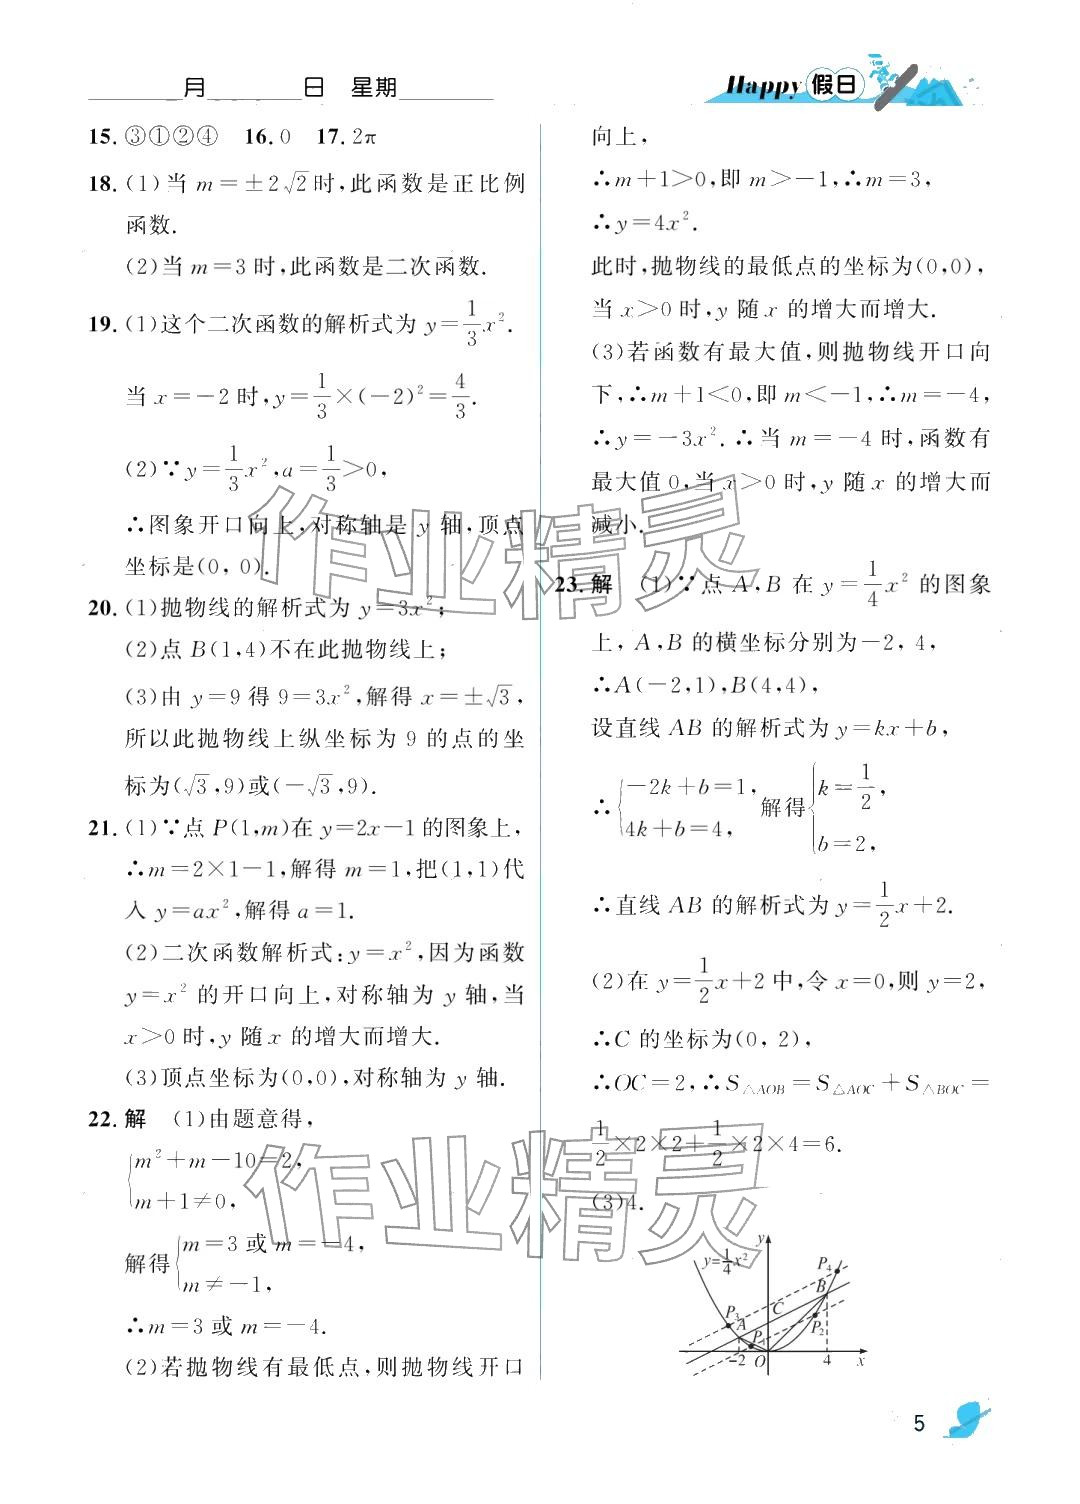 月 日 星期
Happy 假日
15. ③①②④ 16. 0 17. 2π
18. (1)当 m=±2√2时,此函数是正比例
函数.
(2)当 m=3 时,此函数是二次函数.
19. (1)这个二次函数的解析式为 y=1/3x².
当 x=-2 时,y=1/3×(-2)²=4/3.
(2)∵y=1/3x²,a=1/3>0,
∴图象开口向上,对称轴是 y 轴,顶点
坐标是(0,0).
20. (1)抛物线的解析式为 y=3x²;
(2)点 B(1,4)不在此抛物线上;
(3)由 y=9 得 9=3x²,解得 x=±√3,
所以此抛物线上纵坐标为 9 的点的坐
标为(√3,9)或(-√3,9).
21. (1)∵点 P(1,m)在 y=2x-1 的图象上,
∴m=2×1-1,解得 m=1,把(1,1)代
入 y=ax²,解得 a=1.
(2)二次函数解析式:y=x²,因为函数
y=x² 的开口向上,对称轴为 y 轴,当
x>0 时,y 随 x 的增大而增大.
(3)顶点坐标为(0,0),对称轴为 y 轴.
22. 解 (1)由题意得,
{m²+m-10=2,
m+1≠0,
解得{m=3 或 m=-4,
m≠-1,
∴m=3 或 m=-4.
(2)若抛物线有最低点,则抛物线开口
向上,
∴m+1>0,即 m>-1,∴m=3,
∴y=4x².
此时,抛物线的最低点的坐标为(0,0),
当 x>0 时,y 随 x 的增大而增大.
(3)若函数有最大值,则抛物线开口向
下,∴m+1<0,即 m<-1,∴m=-4,
∴y=-3x².∴当 m=-4 时,函数有
最大值 0,当 x>0 时,y 随 x 的增大而
减小.
23. 解 (1)∵点 A,B 在 y=1/4x² 的图象
上,A,B 的横坐标分别为-2,4,
∴A(-2,1),B(4,4),
设直线 AB 的解析式为 y=kx+b,
∴{-2k+b=1, 4k+b=4, 解得{k=1/2, b=2,
∴直线 AB 的解析式为 y=1/2x+2.
(2)在 y=1/2x+2 中,令 x=0,则 y=2,
∴C 的坐标为(0,2),
∴OC=2,∴S△AOB=S△AOC+S△BOC=
1/2×2×2+1/2×2×4=6.
(3)4.
y
y=1/4x²
P₄
B
P₃
A
C
P₁
P₂
-2 O 4 x
作业精灵
作业精灵
5